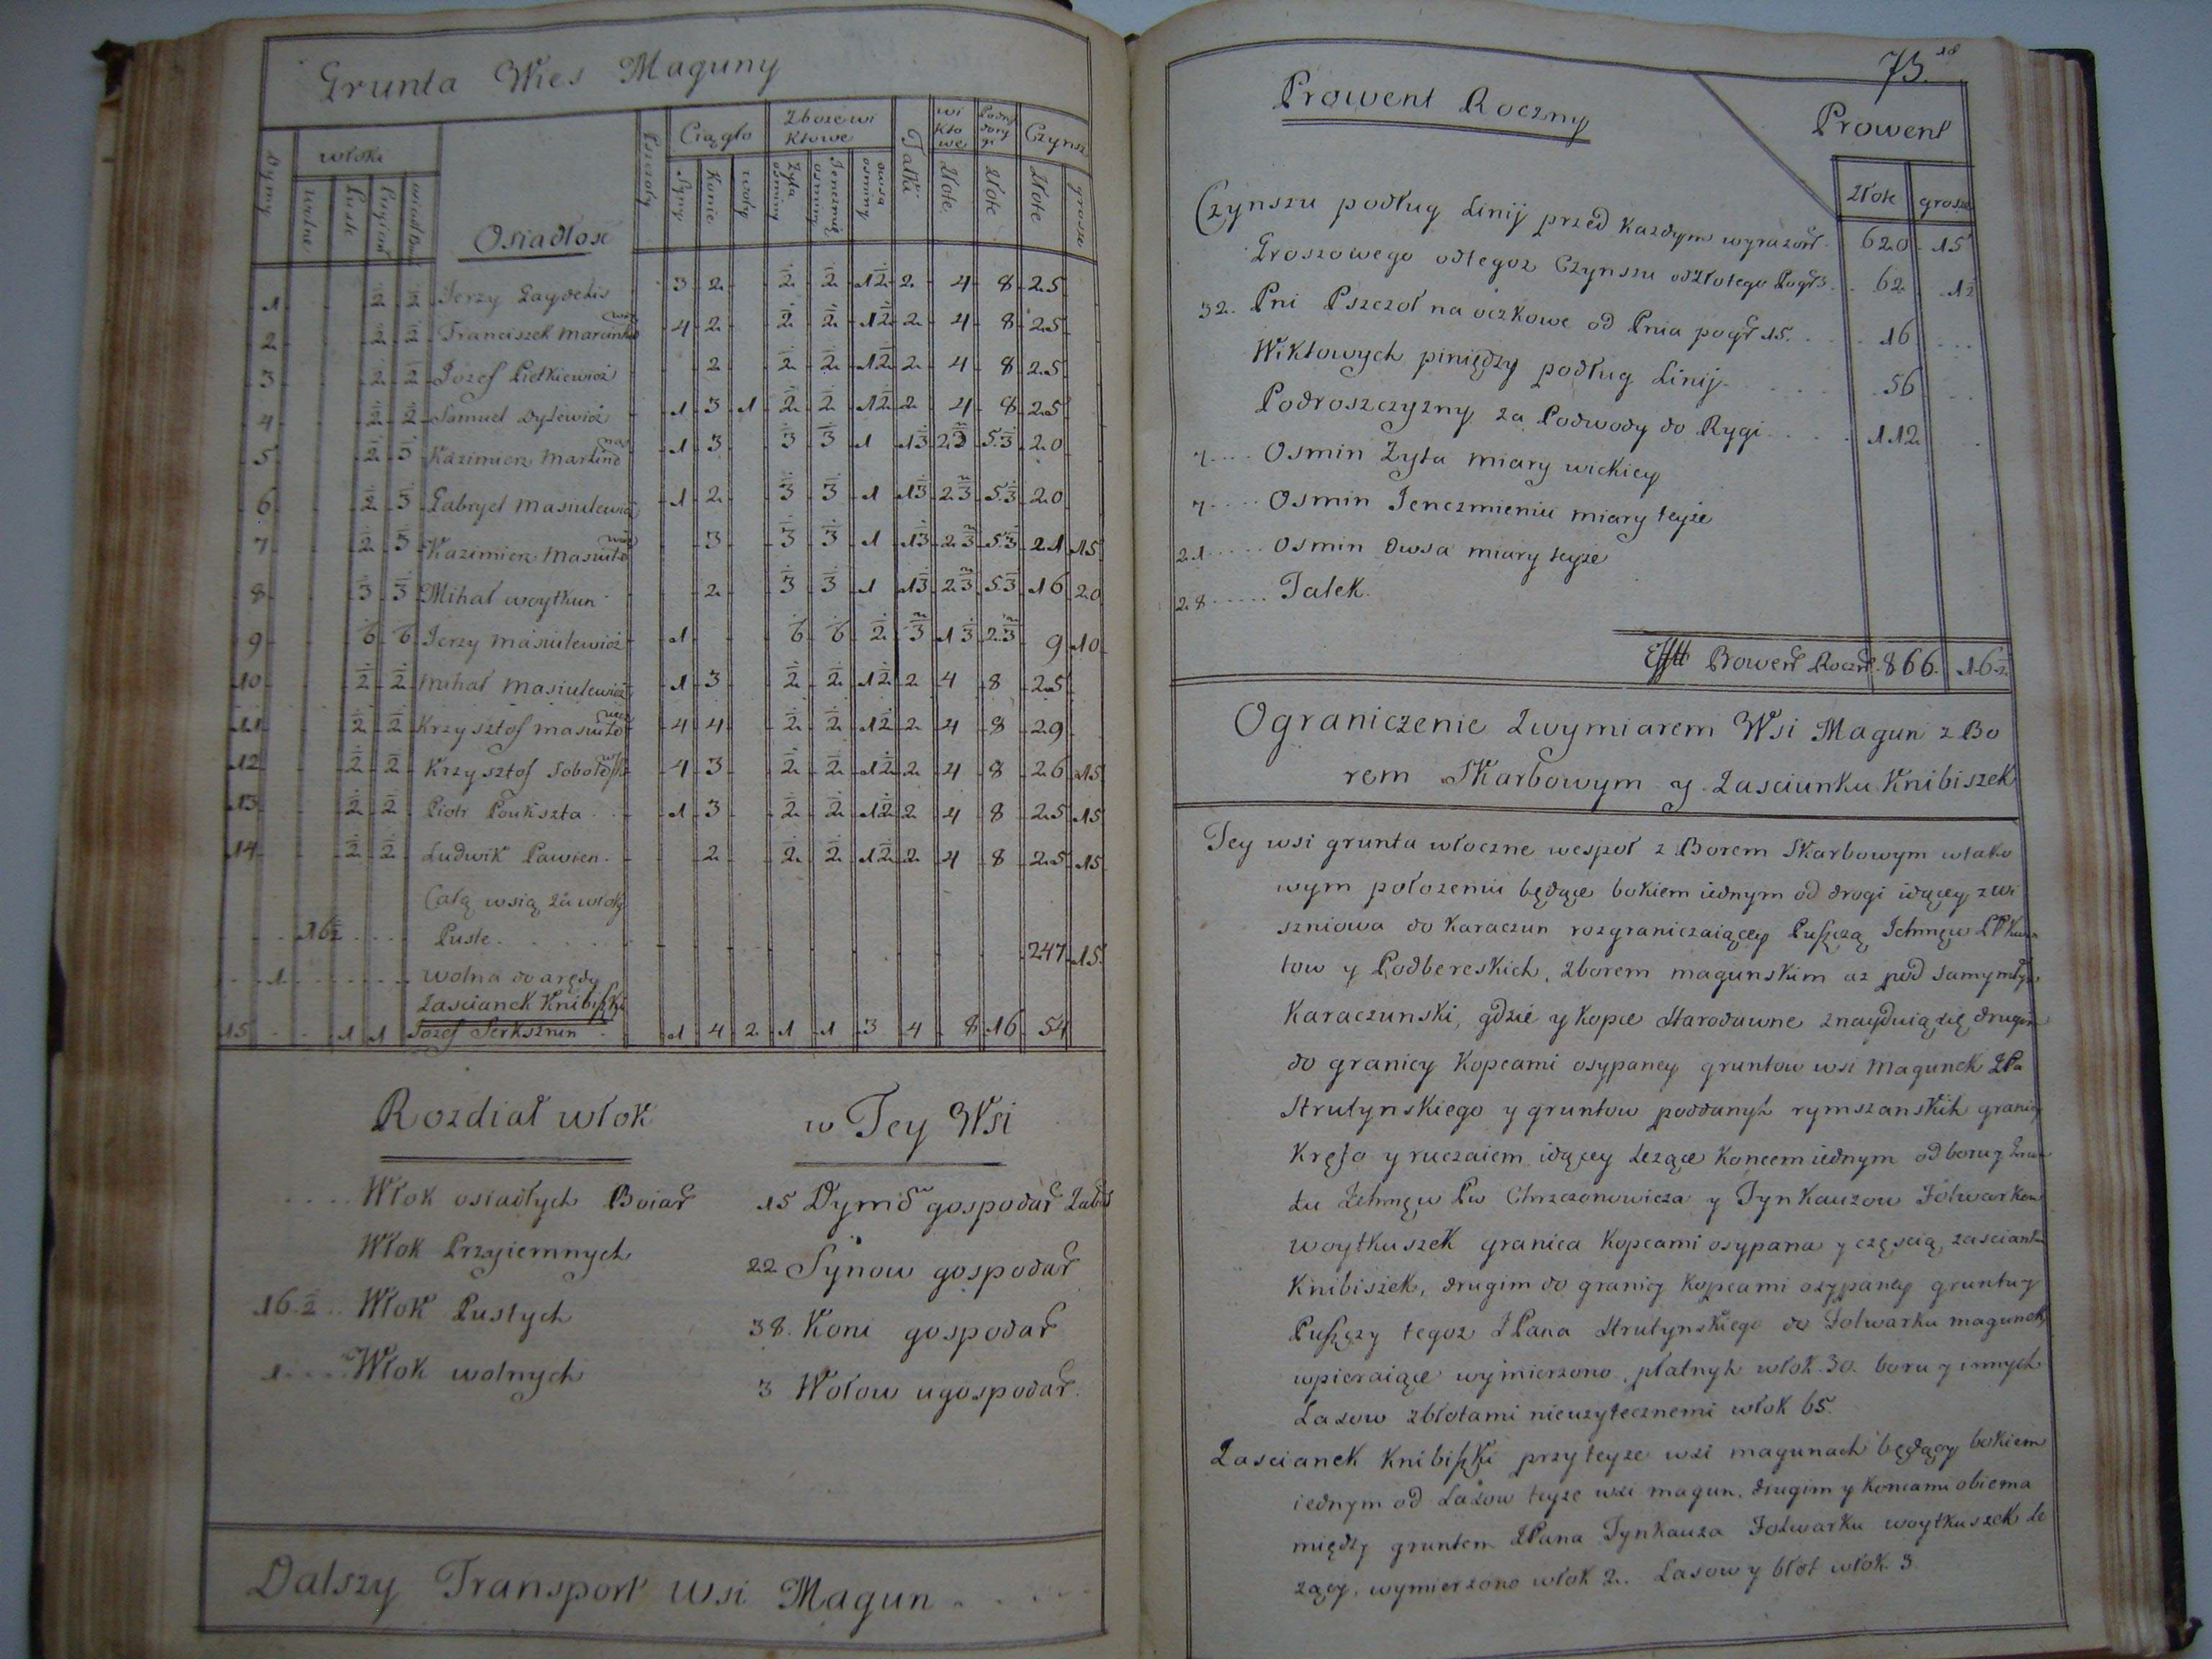 Grunta Wies Maguny
Dymy
włoki
wolne
Puste
Osiadłosc
Pszczoły
Ciągło
Syny
Konie
woły
Zboże wi
ktowe
Żyta osminy
Jenczmie osminy
owsa osminy
Talki
wi
kto
we
Złote
Złote
Czynsz
Złote
grosze
1 2 2 Jerzy Gaydelis 3 2 2 2 1 2 2 4 8 25
2 2 2 Franciszek Marcinke 4 2 2 2 1 2 2 4 8 25
3 2 2 Jozef Pietkiewicz 2 2 2 1 2 2 4 8 25
4 2 2 Samuel Dylewicz 1 3 1 2 2 1 2 2 4 8 25
5 2 3 Kazimierz Martino 1 3 3 3 1 1 3 2 3 5 3 20
6 2 3 Gabryel Masiulewicz 1 2 3 3 1 1 3 2 3 5 3 20
7 2 3 Kazimierz Masiule 3 3 3 1 1 3 2 3 5 3 21 15
8 3 3 Mihał woytkun 2 3 3 1 1 3 2 3 5 3 16 20
9 6 6 Jerzy Masiulewicz 1 6 6 2 3 1 3 2 3 9 10
10 2 2 Mihał Masiulewicz 1 3 2 2 1 2 2 4 8 25
11 2 2 Krzysztof Masiule 4 4 2 2 1 2 2 4 8 29
12 2 2 Krzysztof Sobolews 4 3 2 2 1 2 2 4 8 26 15
13 2 2 Piotr Poukszta 1 3 2 2 1 2 2 4 8 25 15
14 2 2 Ludwik Pawien 2 2 2 1 2 2 4 8 25 15
Całą wsią za włoki
16 2 Puste 247 15
1 wolna do arędy
Zascianek Knibiszki
15 1 1 Jozef Serksznin 1 4 2 1 1 3 4 8 16 54
Rozdiał włok w Tey Wsi
Włok osiadłych Boiar 15 Dymo gospodar
Włok Przyiemnych 22 Synow gospodar
16 2 Włok Pustych 38. Koni gospodar
1 Włok wolnych 3 Wołow u gospodar.
Dalszy Transport Wsi Magun
73.
Prowent Roczny Prowent
Złote grosze
Czynszu podług Linij przed każdym wyrażon 620 15
Groszowego od tegoz Czynszu od złotego Po gr 3 62 1 2
32. Pni Pszczoł na oczkowe od Pnia po gr 15. 16
Wiktowych piniędzy podług Linij 56
Podroszczyzny za Podwody do Rygi 112
7 Osmin Żyta miary wickiey
7 Osmin Jenczmieniu miary teyże
21 Osmin Owsa miary teyże
28 Talek
Prowent Roczn 866. 16 2
Ograniczenie Zwymiarem Wsi Magun z Bo
rem Skarbowym y Zasciunku Knibiszek
Tey wsi grunta włoczne wespoł z Borem Skarbowym w tako
wym położeniu będące bokiem iednym od drogi idącey z wi
szniowa do Karaczun rozgraniczaiącey Puszczą
tow y Podbereskich, z borem magunskim az pod samy młyn
Karaczunski, gdzie y Kopce starodawne znayduią się, drugim
do granicy Kopcami osypaney gruntow wsi Magunek JPa
Strutynskiego y gruntow poddanych rymszanskich granicy
Kręto y ruczaiem idącey leżące Koncem iednym od boru y
Chrzczonowicza y Tynkauzow Folwarkow
woytkuszek granica Kopcami osypana y częscią, zascianku
Knibiszek, drugim do granicy Kopcami osypaney gruntu y
Puszczy tegoz JPana Strutynskiego do Folwarku magunek
wpieraiące wymierzono, płatnych włok 30. boru y innych
Lasow z błotami nieużytecznemi włok 65.
Zascianek Knibiszki przy teyże wsi magunach będący bokiem
iednym od Lasow teyże wsi magun, drugim y Koncami obiema
między gruntem JPana Tynkauza Folwarku woytkuszek le
zący, wymierzono włok 2. Lasow y błot włok 3